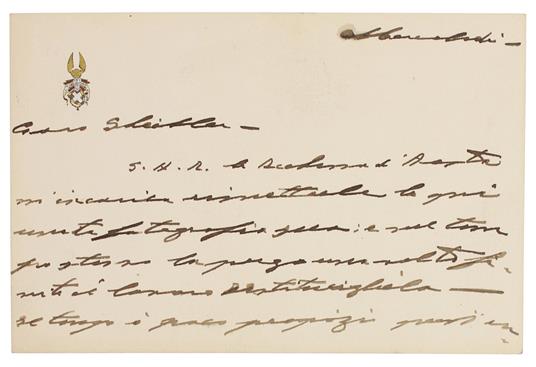 Mercoledì –
Caro Scheibler –
S. A. R. la Duchessa d'Aosta
m'incarica rimetterle la qui
unita fotografia sua: e nel tem
po stesso la prega una volta fi-
nito il lavoro restituirgliela –
Il tempo è poco propizio